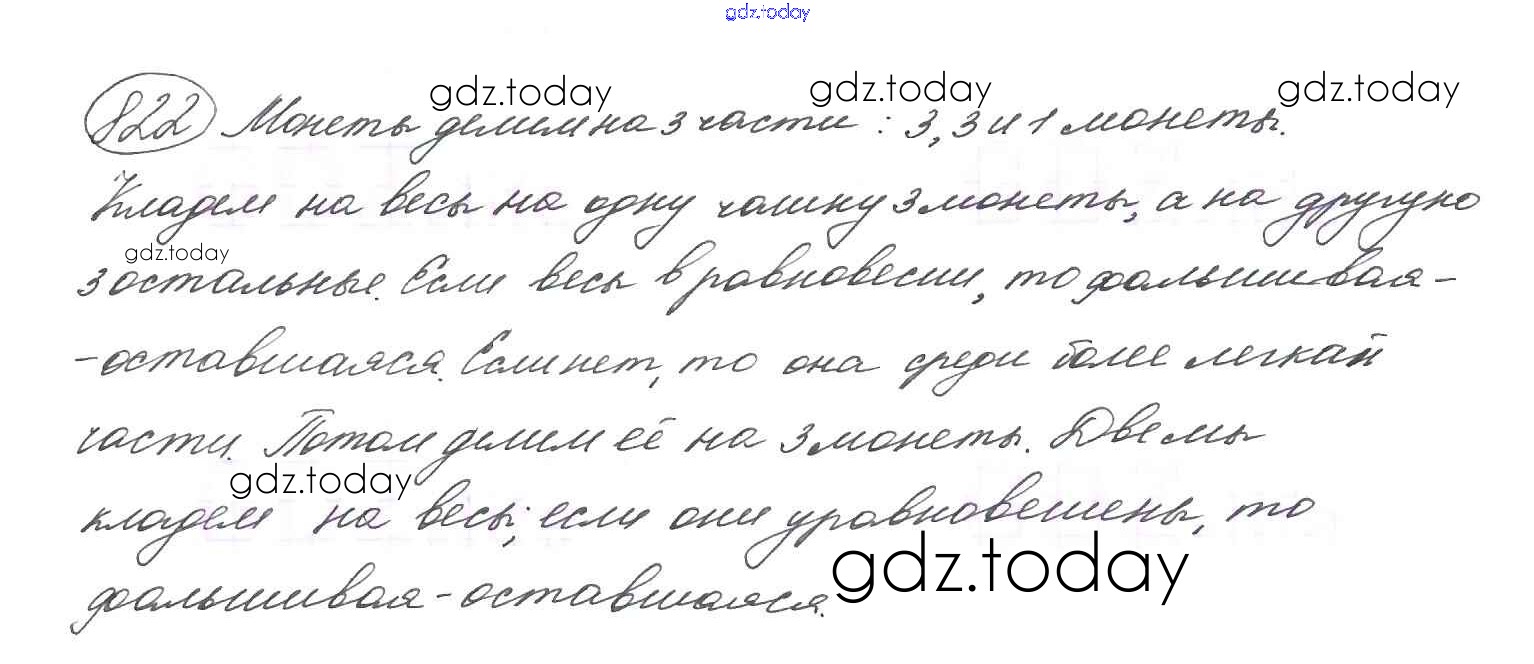 gdz.today
gdz.today gdz.today gdz.today
822 Монеты делим на 3 части: 3, 3 и 1 монеты.
Кладем на весы на одну чашку 3 монеты, а на другую
gdz.today
3 остальные. Если весы в равновесии, то фальшивая -
- оставшаяся. Если нет, то она среди более легкой
части. Потом делим её на 3 монеты. Две мы
gdz.today
кладем на весы; если они уравновешены, то
gdz.today
фальшивая - оставшаяся.